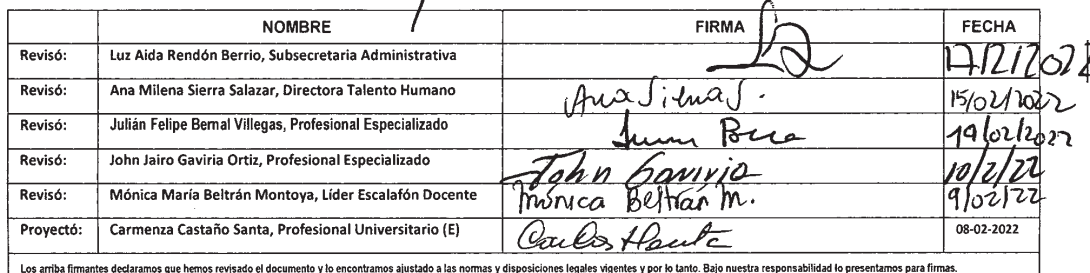 NOMBRE FIRMA FECHA
Revisó: Luz Aida Rendón Berrio, Subsecretaria Administrativa 17/2/202
Revisó: Ana Milena Sierra Salazar, Directora Talento Humano Ana Sierra S. 15/02/2022
Revisó: Julián Felipe Bernal Villegas, Profesional Especializado 14/02/2022
Revisó: John Jairo Gaviria Ortiz, Profesional Especializado John Gaviria 10/2/22
Revisó: Mónica María Beltrán Montoya, Líder Escalafón Docente Mónica Beltrán M. 9/02/22
Proyectó: Carmenza Castaño Santa, Profesional Universitario (E) 08-02-2022
Los arriba firmantes declaramos que hemos revisado el documento y lo encontramos ajustado a las normas y disposiciones legales vigentes y por lo tanto. Bajo nuestra responsabilidad lo presentamos para firmas.